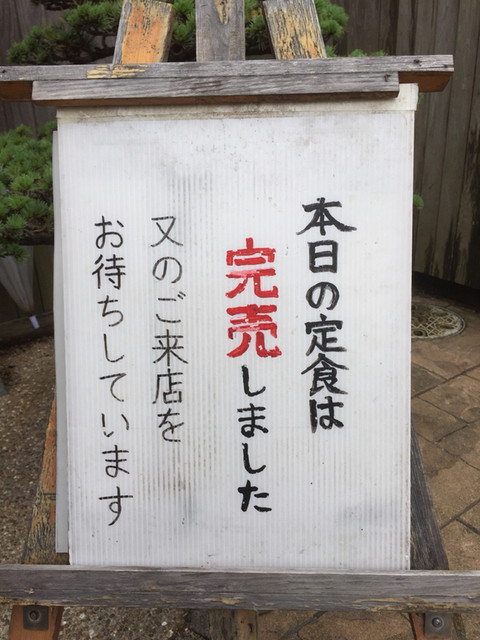 本日の定食は
完売しました
又のご来店を
お待ちしています